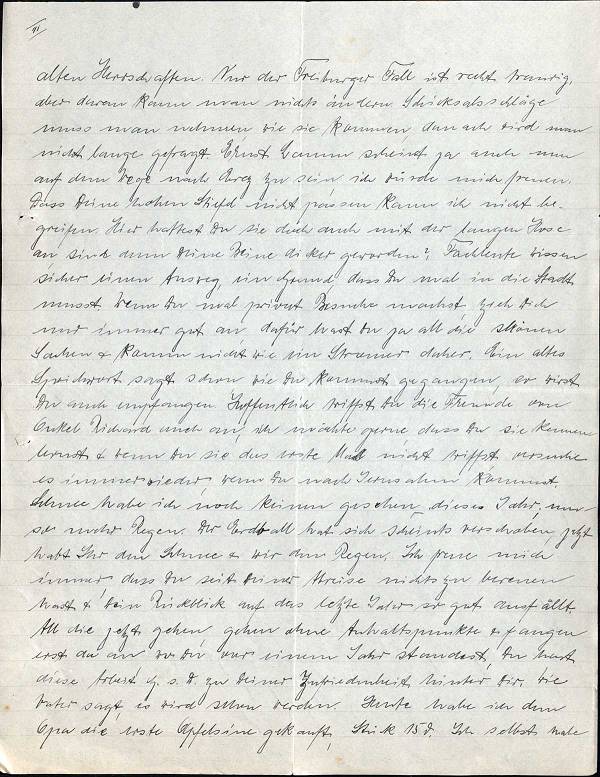 III
alten Herrschaften. Nur der Freiburger Fall ist recht traurig,
aber daran kann man nichts ändern Schicksalsschläge
muss man nehmen wie sie kommen danach wird man
nicht lange gefragt Ernst scheint ja auch nun
auf dem Wege nach Erez zu sein ich würde mich freuen.
Dass Deine hohen Stiefel nicht passen kann ich nicht be-
greifen. Hier hattest Du sie doch auch mit der langen Hose
an sind denn Deine Beine dicker geworden? Fachleute wissen
sicher einen Ausweg, ein Grund dass Du mal in die Stadt
musst. Wenn Du mal privat Besuche machst zieh Dich
nur immer gut an dafür hast Du ja all die schönen
Sachen & komm nicht wie ein Stromer daher. Ein altes
Sprichwort sagt schon wie Du kommst gegangen, so wirst
Du auch empfangen. Hoffentlich triffst Du die Freunde von
Onkel Richard auch an, ich möchte gerne dass Du sie kennen
lernst & wenn Du sie das erste Mal nicht triffst versuche
es immer wieder, wenn Du nach Jerusalem kommst
Schnee habe ich noch keinen gesehen dieses Jahr, um-
so mehr Regen. Der Erdball hat sich scheints verschoben, jetzt
habt Ihr den Schnee & wir den Regen. Ich freue mich
immer, dass Du seit Deiner Abreise nichts zu bereuen
hast & Dein Rückblick auf das letzte Jahr so gut ausfällt.
All die jetzt gehen gehen ohne Anhaltspunkte & fangen
erst da an wo Du vor einem Jahr standest, Du hast
diese Arbeit G. s. D. zu Deiner Zufriedenheit hinter Dir, wie
Vater sagt, es wird schon werden. Heute habe ich dem
Opa die erste Apfelsine gekauft, Stück 15 d. Ich selbst habe